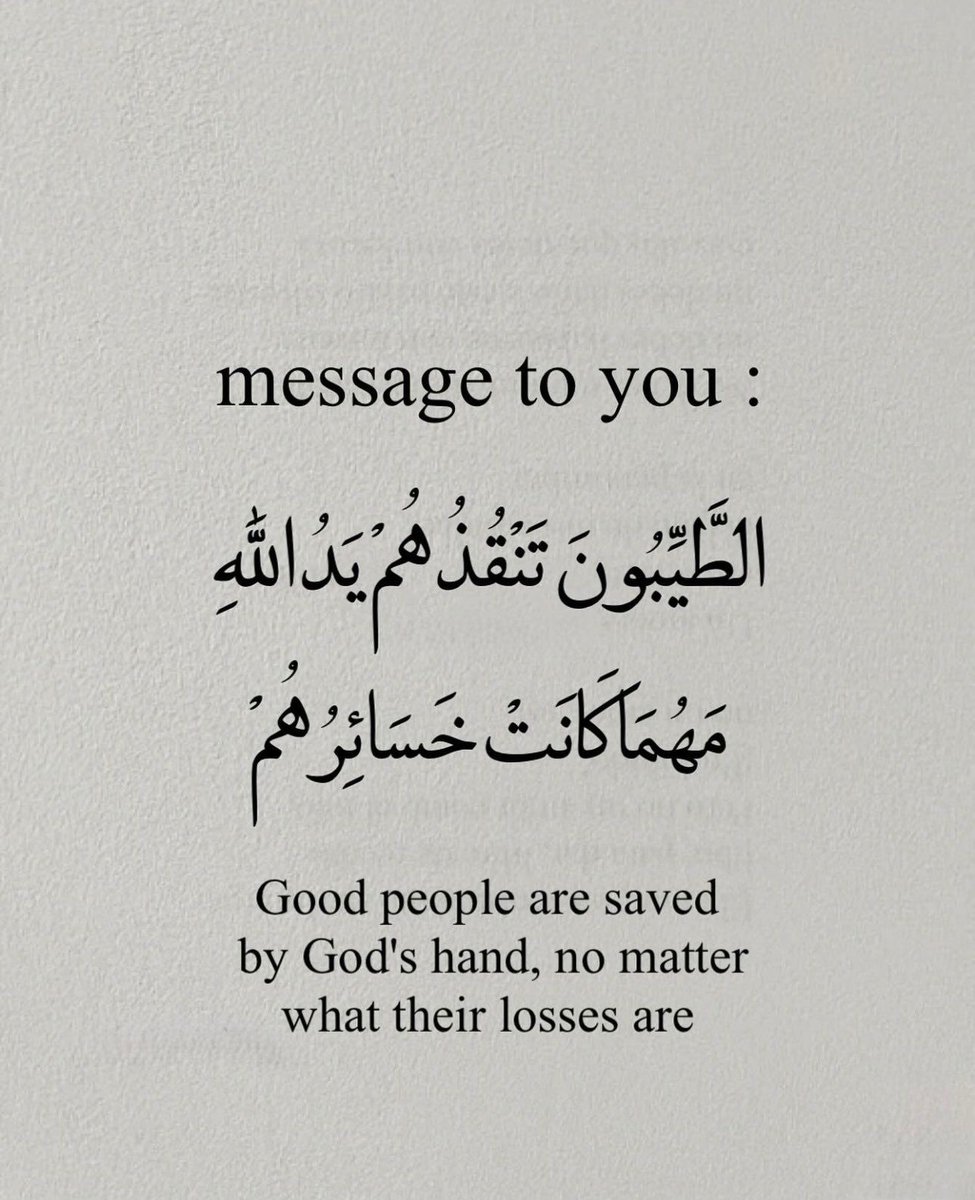 message to you :
الطَّيِّبُونَ تَنْقُذُهُمْ يَدُ اللّٰهِ
مَهُمَا كَانَتْ خَسَائِرُهُمْ
Good people are saved
by God's hand, no matter
what their losses are